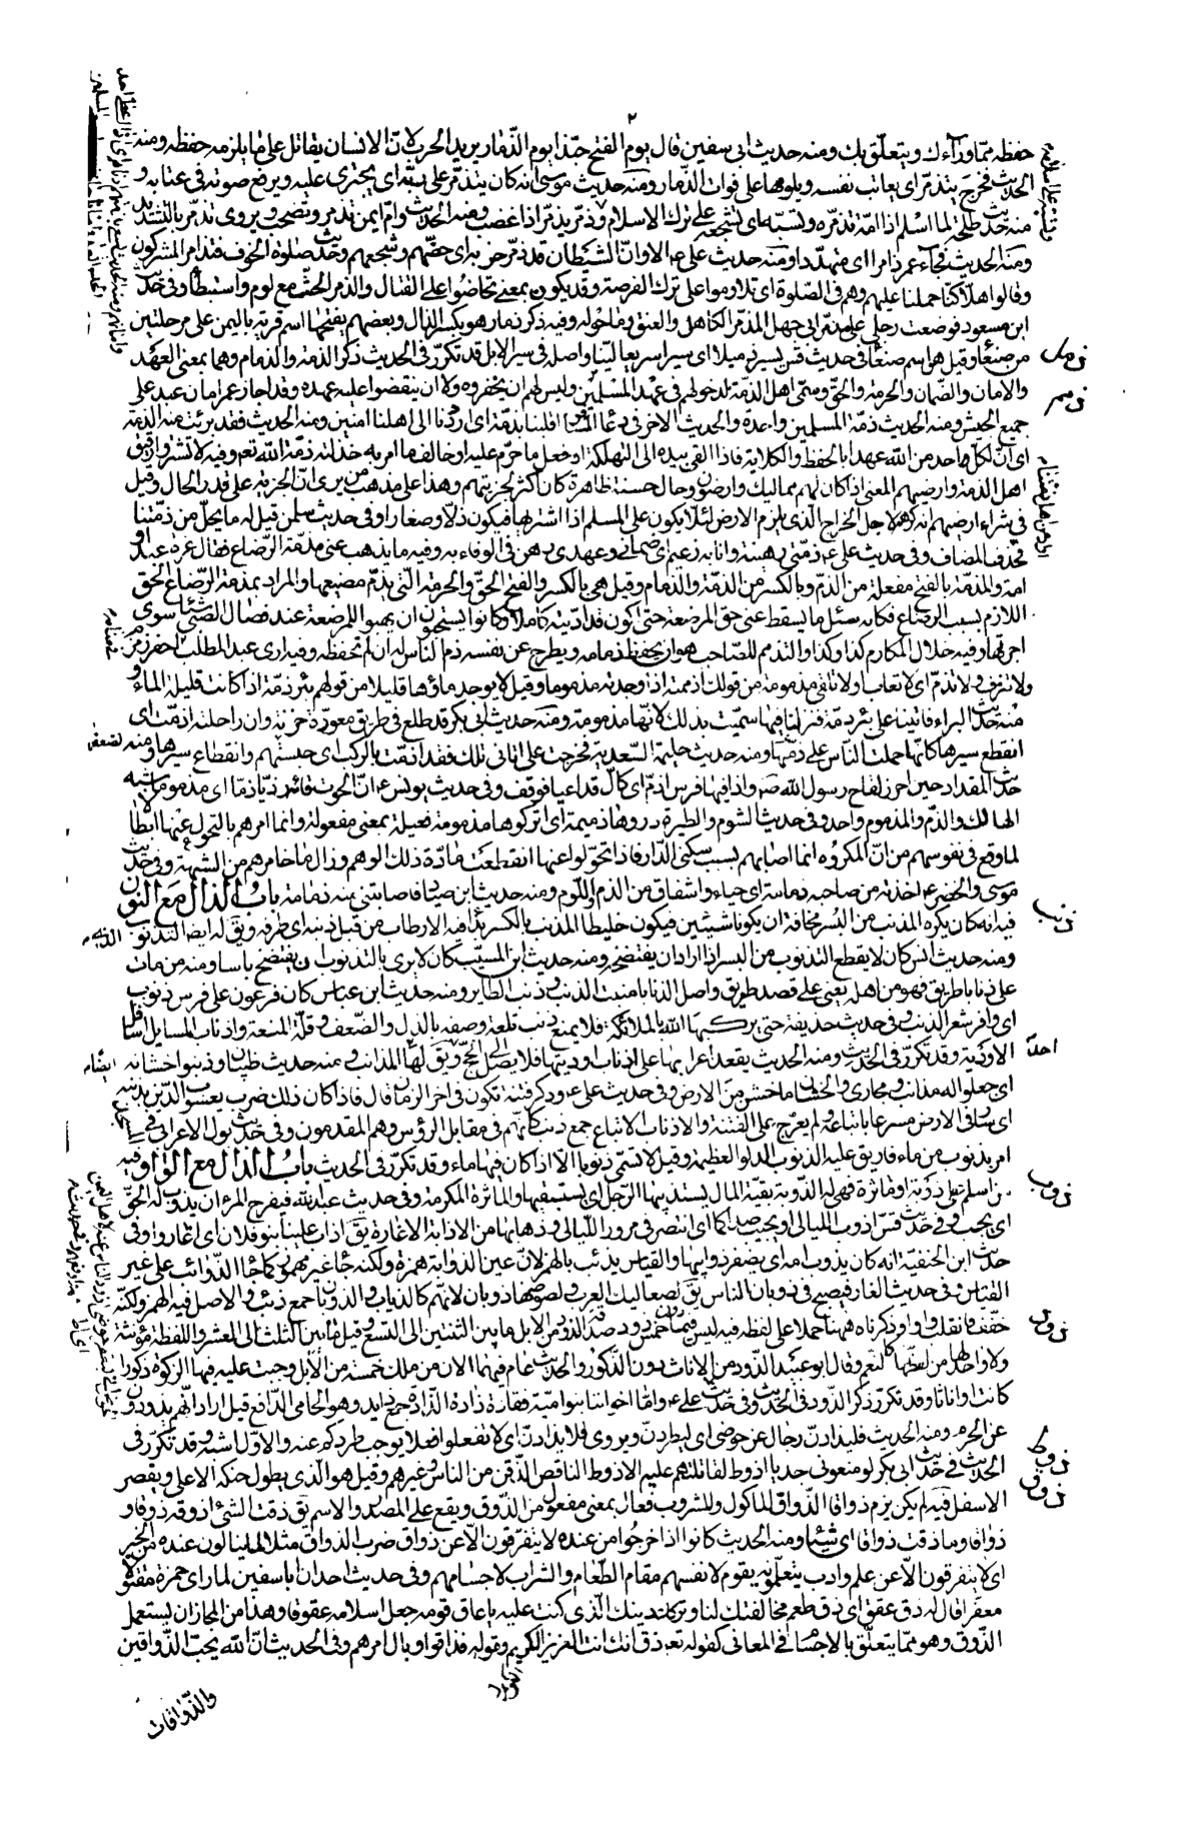 ٢
حفظه مما ورآءك ويتعلق بك ومنه حديث ابي سفين قال يوم الفتح حبذا يوم الذمار يريد الحرب لان الانسان يقاتل على ما يلزمه حفظه ومنه
الحديث فخرج يتذمر اى يعاتب نفسه ويلومها على فوات الذمار ومنه حديث موسى انه كان يتذمر على ربه اى يجترى عليه ويرفع صوته فى عتابه و
منه حديث طلحة لما اسلم اذا امه تذمره وتسبه اى تشجعه على ترك الاسلام وذمر يذمر اذا غضب ومنه الحديث وام ايمن تذمر وتصخب ويروى تذمر بالتشديد
ومنه الحديث فجآء عمر ذامرا اى متهددا ومنه حديث على ع الا وان الشيطان قد ذمر حزبه اى حضهم وشجعهم وحديث صلوة الخوف فتذامر المشركون
وقالوا هلا كنا حملنا عليهم وهم فى الصلوة اى تلاوموا على ترك الفرصة وقد يكون بمعنى تحاضوا على القتال والذمر الحث مع لوم واستبطاء وفى حديث
ابن مسعود فوضعت رجلى على مذمر ابى جهل المذمر الكاهل والعنق وما حوله وفيه ذكر ذمار هو بكسر الذال وبعضهم يفتحها اسم قرية باليمن على مرحلتين
من صنعا وقيل هو اسم صنعا فى حديث قس يسير ذميلا اى سيرا سريعا لينا واصله فى سير الابل قد تكرر فى الحديث ذكر الذمة والذمام وهما بمعنى العهد
والامان والضمان والحرمة والحق وسمى اهل الذمة لدخولهم فى عهد المسلمين وليس لهم ان يخفروه ولا ان ينقضوا عليه عهده وقد اجاز عمر امان عبد على
جميع الجيش ومنه الحديث ذمة المسلمين واحدة والحديث الاخر فى دعآ المسافر اقلبنا بذمة اى ارددنا الى اهلنا امنين ومنه الحديث فقد برئت منه الذمة
اى ان لكل احد من الله عهدا بالحفظ والكلاية فاذا القى بيده الى التهلكة او فعل ما حرم عليه او خالف ما امر به خذلته ذمة الله تعالى وفيه لا تشتروا رقيق
اهل الذمة وارضيهم المعنى اذا كان لهم مماليك وارضون وحال حسنة ظاهرة كان اكثر لجزيتهم وهذا على مذهب من يرى ان الجزية على قدر الحال وقيل
فى شراء ارضيهم انه كرهه لاجل الخراج الذى يلزم الارض لئلا يكون على المسلم اذا اشتراها فيكون ذلا وصغارا وفى حديث سلمن قيل له ما يحل من ذمتنا
فحذف المضاف وفى حديث على ع ذمتى رهينة وانا به زعيم اى ضمانى وعهدى رهن فى الوفاء به وفيه ما يذهب عنى مذمة الرضاع فقال غرة عبد او
امة والمذمة بالفتح مفعلة من الذم وبالكسر من الذمة والذمام وقيل هى بالكسر والفتح الحق والحرمة التى يذم مضيعها والمراد بمذمة الرضاع الحق
اللازم بسبب الرضاع فكانه سئل ما يسقط عنى حق المرضعة حتى اكون قد اديته كاملا وكانوا يستحبون ان يهبوا للمرضعة عند فصال الصبى شيئا سوى
اجرتها وفيه خلال المكارم كذا وكذا والتذمم للصاحب هو ان يحفظ ذمامه ويطرح عن نفسه ذم الناس له ان لم تحفظه وفيه ارى عبد المطلب احفر زمزم
ولا تنزف ولا تذم اى لا تعاب ولا تلفى مذمومة من قولك اذممته اذا وجدته مذموما وقيل لا يوجد ماؤها قليلا من قولهم بئر ذمة اذا كانت قليلة الماء و
منه حديث البراء فاتينا على بئر ذمة فنزلنا فيها سميت بذلك لانها مذمومة ومنه حديث ابى بكر قد طلع فى طريق معورة حزنة وان راحلته اذمت اى
انقطع سيرها كانها حملت الناس على ذمها ومنه حديث حليمة السعدية فخرجت على اتانى تلك فقد اذمت بالركب اى حبستهم وانقطاع سيرها ومنه
حديث المقداد حين احرز لقاح رسول الله ص واذا فيها فرس اذم اى كال قد اعيا فوقف وفى حديث يونس ع ان الحوت قائه رذيا ذما اى مذموما شبه
الهالك والذم والمذموم واحد وفى حديث الشوم والطيرة ذروها ذميمة اى اتركوها مذمومة فعيلة بمعنى مفعولة وانما امرهم بالتحول عنها ابطالا
لما وقع فى نفوسهم من ان المكروه انما اصابهم بسبب سكنى الدار فاذا تحولوا عنها انقطعت مادة ذلك الوهم وزال ما خامرهم من الشبهة وفى حديث
موسى والخضر ع اخذته من صاحبه ذمامة اى حياء واشفاق من الذم واللوم ومنه حديث ابن صياد فاصابتنى منه ذمامة باب الذال مع النون
فيه انه كان يكره المذنب من البسر مخافة ان يكونا شيئين فيكون خليطا المذنب بالكسر بدا فيه الارطاب من قبل ذنبه اى طرفه ويق له ايضا التذنوب
ومنه حديث انس كان لا يقطع التذنوب من البسر اذا اراد ان يفتضخه ومنه حديث ابن المسيب كان لا يرى بالتذنوب ان يفتضخ باسا ومنه من مات
على ذنابا طريق فهو من اهله يعنى على قصد طريق واصل الذنابا منبت الذنب وذنب الطاير ومنه حديث ابن عباس كان فرعون على فرس ذنوب
اى وافر شعر الذنب وفى حديث حذيفة حتى يركبها الله بالملائكة فلا يمنع ذنب تلعة وصفه بالذل والضعف وقلة المنعة واذناب المسايل اسافل
الاودية وقد تكرر فى الحديث ومنه الحديث يقعد اعرابها على اذناب اوديتها فلا يصل الى الحج ويق لها المذانب ومنه حديث ظبيان وذنبوا خشانه
اى جعلوا له مذانب ومجارى والخشان ما خشن من الارض وفى حديث على ع وذكر فتنة تكون فى اخر الزمان قال فاذا كان ذلك ضرب يعسوب الدين بذنبه
اى سار فى الارض مسرعا باتباعه ولم يعرج على الفتنة والاذناب الاتباع جمع ذنب كانهم فى مقابل الرؤس وهم المقدمون وفى حديث بول الاعرابى فى
امر بذنوب من ماء فاريق عليه الذنوب الدلو العظيمة وقيل لا تسمى ذنوبا الا اذا كان فيها ماء وقد تكرر فى الحديث باب الذال مع الواو فيه
من اسلم على ذوبة او ماثرة فهى له الذوبة بقية المال يستذيبها الرجل اى يستبقيها والماثرة المكرمة وفى حديث عبد الله فيفرح المرء ان يذوب له الحق
اى يجب وفى حديث قس اذوب الليالى او يجيب صداكما اى انتظر فى مرور الليالى وذهابها من الاذابة الاغارة يق اذاب علينا بنو فلان اى اغاروا وفى
حديث ابن الحنفية انه كان يذوب امه اى يضفر ذوايبها والقياس يذئب بالهمز لان عين الذؤابة همزة ولكنه جآ غير مهموز كما جآ الذوائب على غير
القياس وفى حديث الغار فيصبح فى ذوبان الناس يق لصعاليك العرب ولصوصها ذوبان لانهم كالذياب والذوبان جمع ذئب والاصل فيه الهمز ولكنه
خفف فانقلب واوا وذكرناه ههنا حملا على لفظه فيه ليس فيما دون خمس ذود صدقة الذود من الابل ما بين الثنتين الى التسع وقيل ما بين الثلث الى العشر واللفظة مؤنثة
ولا واحد لها من لفظها كالنعم وقال ابو عبيد الذود من الاناث دون الذكور والحديث عام فيهما لان من ملك خمسة من الابل وجبت عليه فيها الزكوة ذكورا
كانت او اناثا وقد تكرر ذكر الذود فى الحديث وفى حديث على ع واما اخواننا بنو امية فقادة ذادة الذادة جمع ذايد وهو الحامى الدافع قيل اراد انهم يذودون
عن الحرم ومنه الحديث فليذادن رجال عن حوضى اى ليطردن ويروى فلا يذادن اى لا تفعلوا فعلا يوجب طردكم عنه والاول اشبه وقد تكرر فى
الحديث فى حديث ابى بكر لو منعونى جديا اذوط لقاتلتهم عليه الاذوط الناقص الذقن من الناس وغيرهم وقيل هو الذى يطول حنكه الاعلى ويقصر
الاسفل فيه لم يكن يزم ذواقا الذواق الماكول والمشروب فعال بمعنى مفعول من الذوق ويقع على المصدر والاسم يق ذقت الشئ اذوقه ذوقا و
ذواقا وما ذقت ذواقا اى شيئا ومنه الحديث كانوا اذا خرجوا من عنده لا يتفرقون الا عن ذواق ضرب الذواق مثلا لما ينالون عنده من الخير
اى لا يتفرقون الا عن علم وادب يتعلمونه يقوم لانفسهم مقام الطعام والشراب لاجسامهم وفى حديث احد ان اباسفين لما راى حمزة مقتولا
معفرا قال له ذق عقق اى ذق طعم مخالفتك لنا وتركك دينك الذى كنت عليه يا عاق قومه جعل اسلامه عقوقا وهذا من المجاز ان يستعمل
الذوق وهو مما يتعلق بالاجسام فى المعانى كقوله تع ذق انك انت العزيز الكريم وقوله فذاقوا وبال امرهم وفى الحديث ان الله يحب الذواقين
والذواقات
ذمل
ذمم
ذنب
ذوب
ذود
ذوط
ذوق